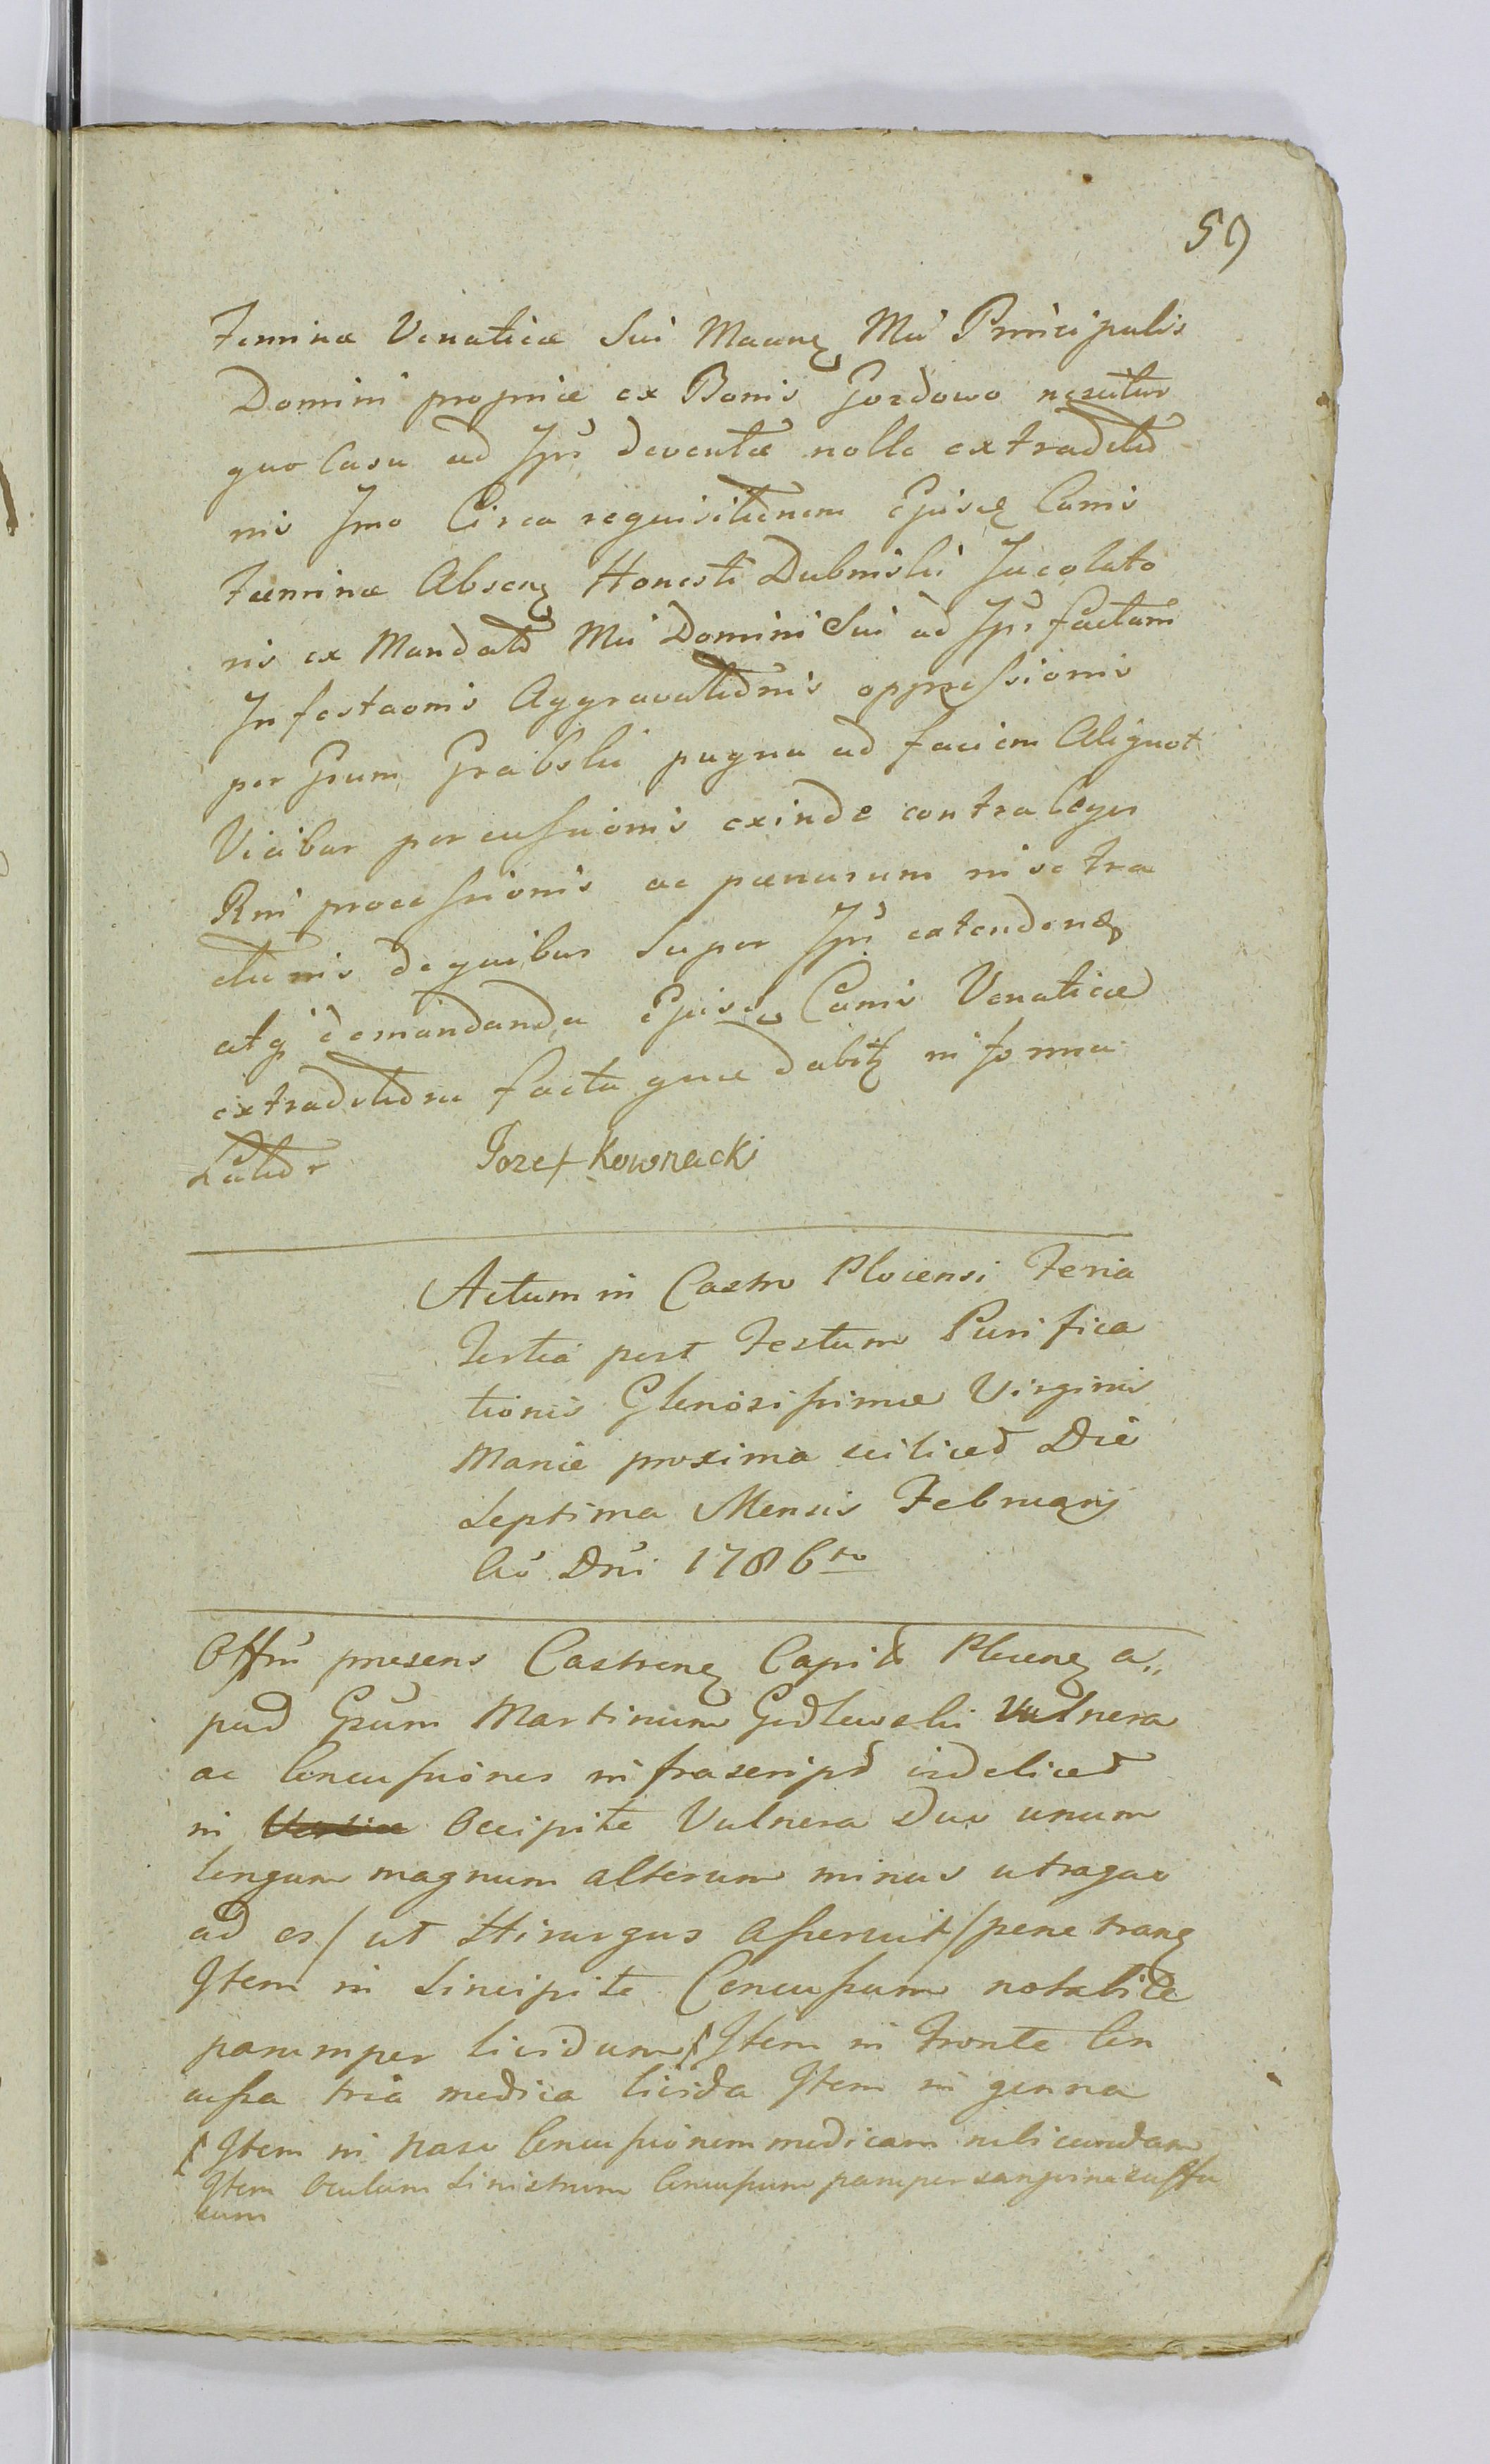 59
Feminæ Venaticæ Sui Maanz Mci Principalis
Domini propriæ ex Bonis Gozdowo nescitur
quo Casu ad Ipsū deventæ nolle extraditio
nis Imo Circa requisitionem Ejusdz Canis
Fæminæ Absenz Honesti Dubniski Jacolato
ris ex Mandato Mci Domini Sui ad Ipsū factam
Infestaonis Aggravationis oppressionis
per Gsum Grabski pugna ad faciem Aliquot
Vicibus percussionis exinde contra leges
Rni processionis ac pænarum in se tra
ctionis de quibus Super Ipsū extendenz
atq demandanda Ejusdz Canis Venaticæ
extraditione facta quæ dabitz in forma
Latior Jozef Kownacki
Actum in Castro Plocensi Feria
Tertia post Festum Purifica
tionis Gloriosissimæ Virginis
Mariæ proxima scilicet Die
Septima Mensis Februarij
Aō Dnī 1786to
Offm̄ presens Castrenz Capit Plocenz a„
pud Gsum Martinum Godlewski Vulnera
ac Concussiones infrascript videlicet
in Occipite Vulnera Duo unum
longum magnum alterum minus utraque
ad os / ut Hirurgus Asseruit / penetranz
Item in Sincipite Concussum notabile
parumper lividum Item in Fronte Con
cussa tria modica livida Item in genna
Item in Naso Concussionem modicam rubicundam
Item Oculum Sinistrum Concussum pamper sangvine suffu
sum